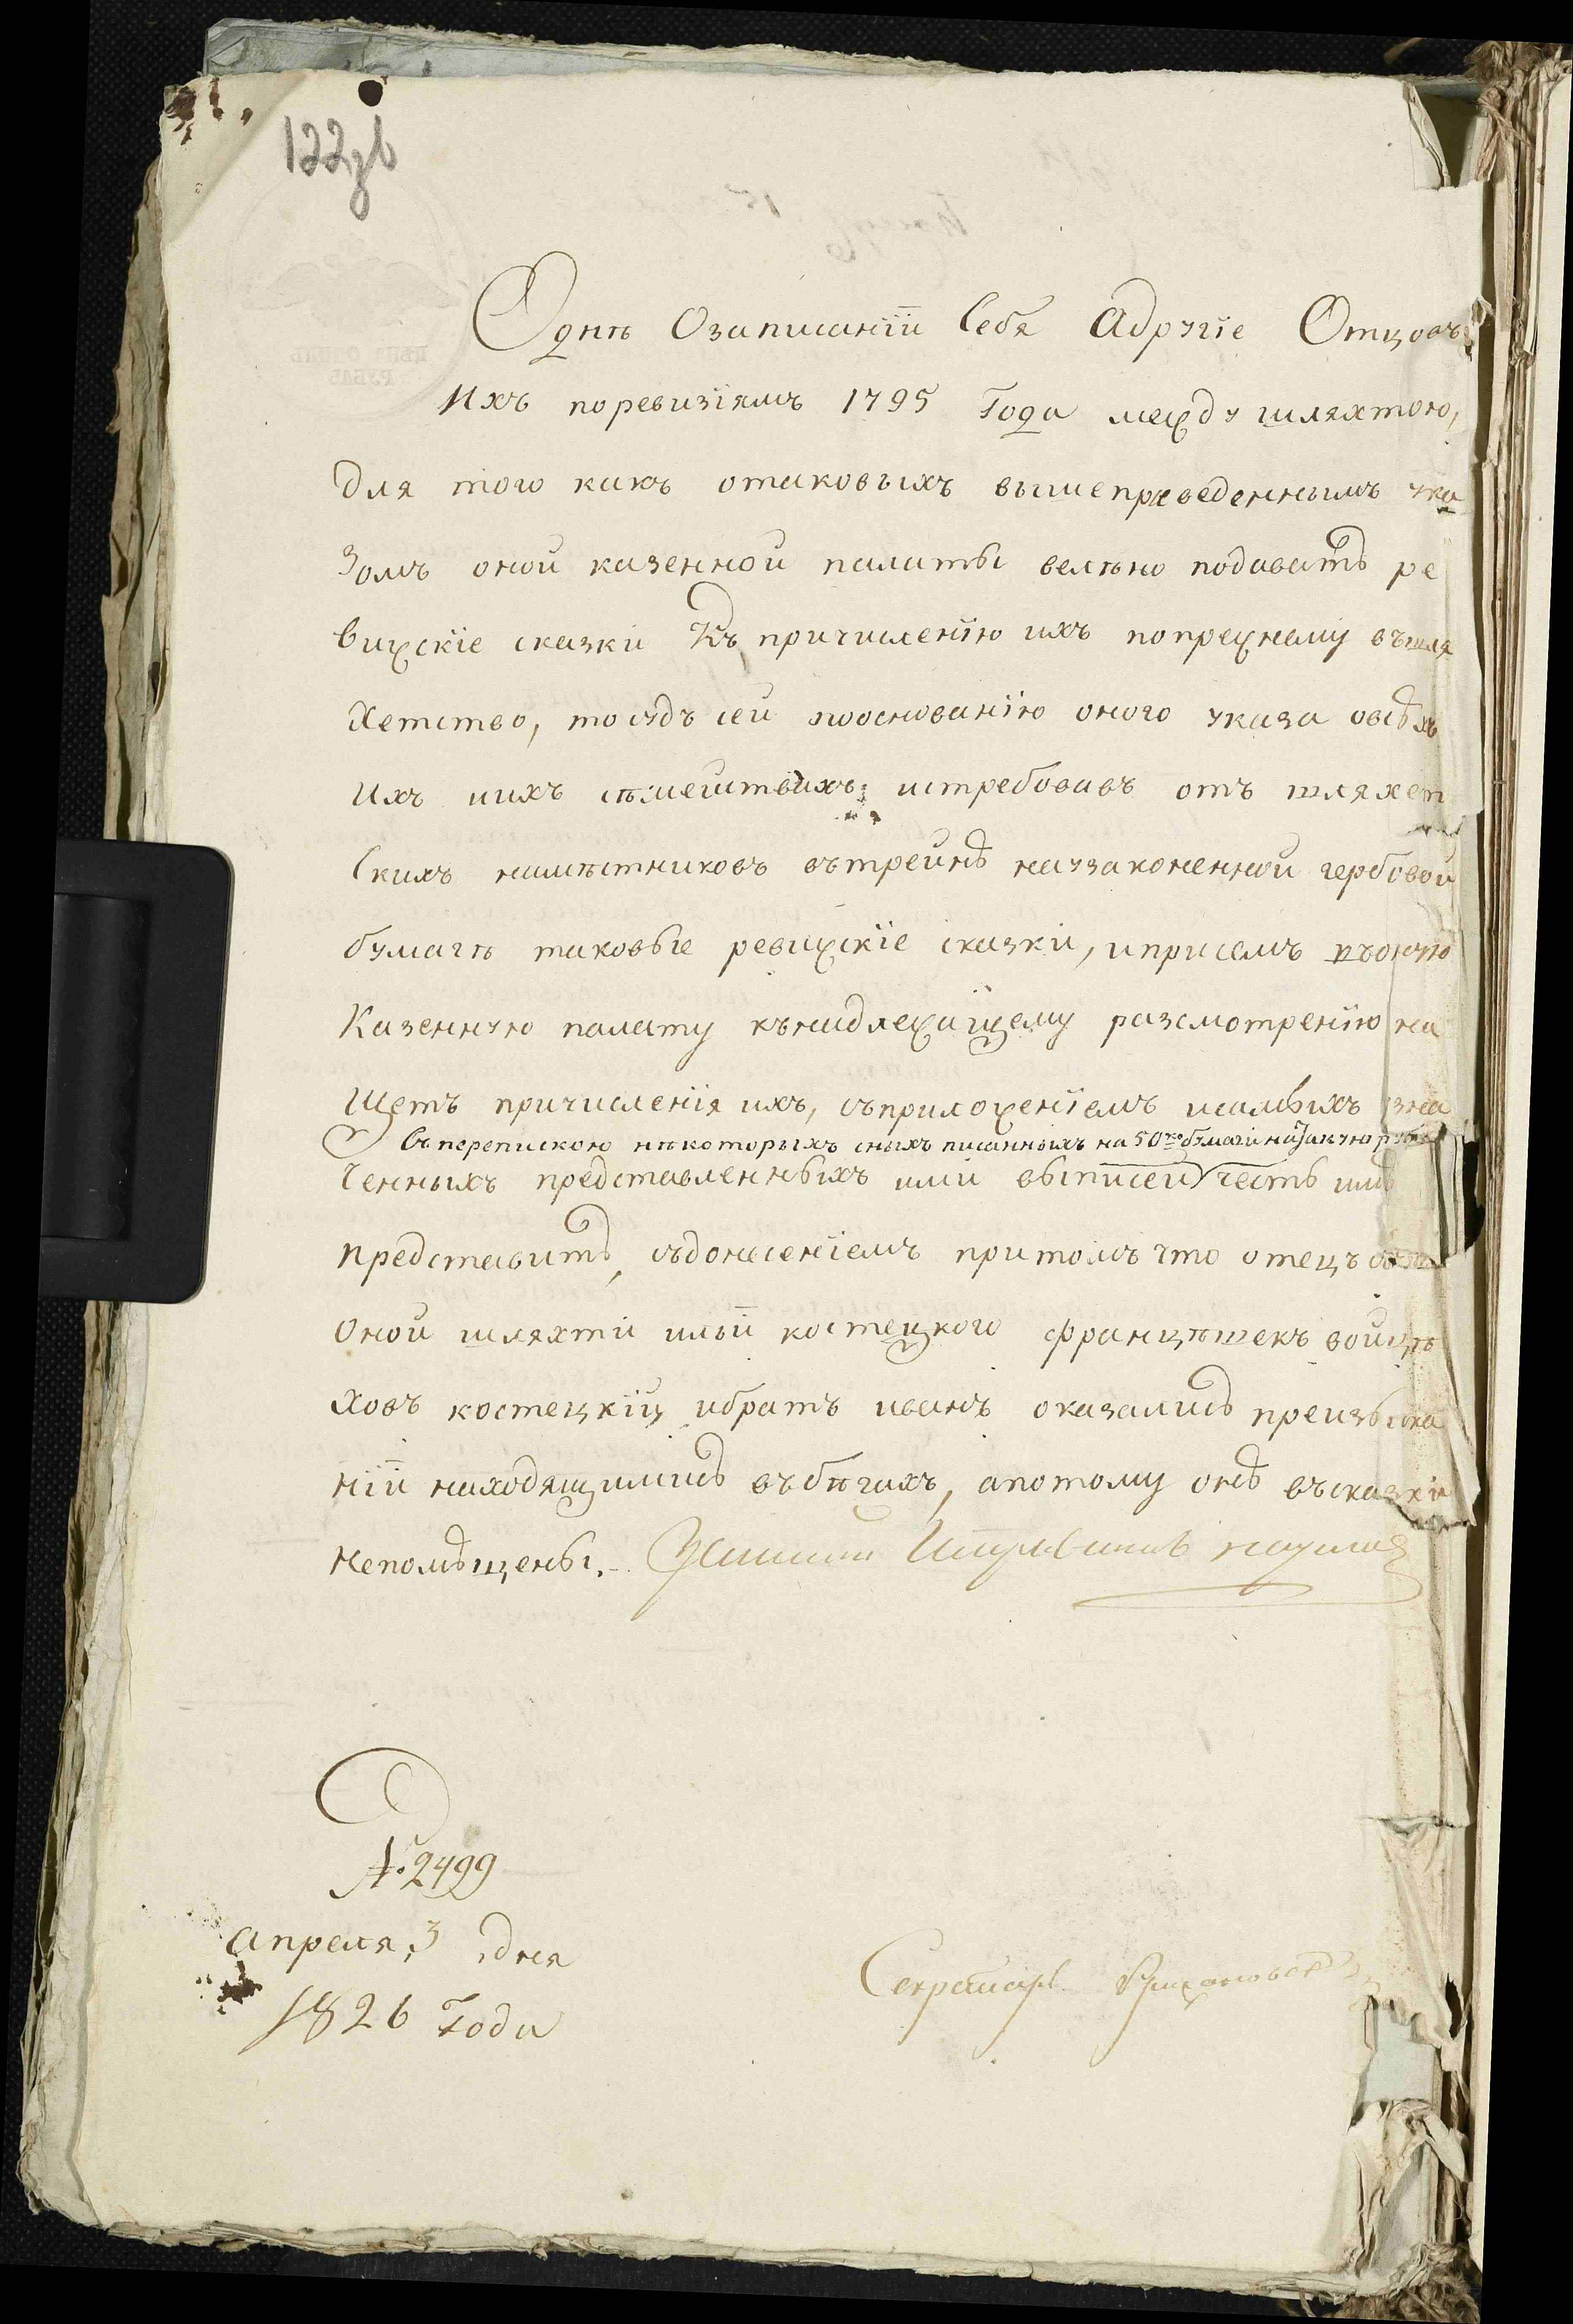 122зв
Однѣ Озаписанїи Себя Адругїе Отцовъ
Ихъ поревизїямъ 1795 Года между шляхтою,
для того какъ отаковыхъ вышеприведеннымъ ука
зомъ оной казенной палаты велѣно подавать ре
вижскїе сказки Къ причисленїю ихъ попрежнему въшля
хетство, тосудъ сей пооснованїю оного указа овсѣхъ
ихъ иихъ сѣмействахъ истребовавъ отъ шляхет
скихъ намѣстниковъ втрейнѣ наузаконенной гербовой
бумагѣ таковые ревижскїе сказки,иприсемъ въоную
Казенную палату кънадлежащему разсмотренїю на
щетъ причисленїя ихъ, съприложенїемъ исамыхъ зна
съперепискою нѣкоторыхъ сныхъ писанныхъ на 50
ченныхъ представленныхъ ими выписей честь имѣ
представить, съдонесенїемъ притомъ что отецъ
оной шляхти ильи костецкого францѣшекъ войцѣ
ховъ костецкїй ибратъ иванъ оказались приизыска
нїи находящимись въбѣгахъ, апотому онѣ въсказки
непомѣщены.
№ 2499
апреля 3 дня
1826 Года
Секретарь
ЦѢНА ОДИНЪ
РУБЛЬ